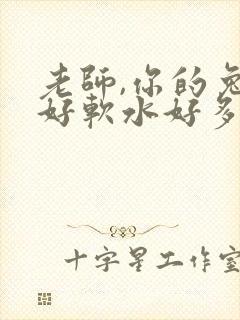 老師,你的兔
好軟水好多
十字星工作室